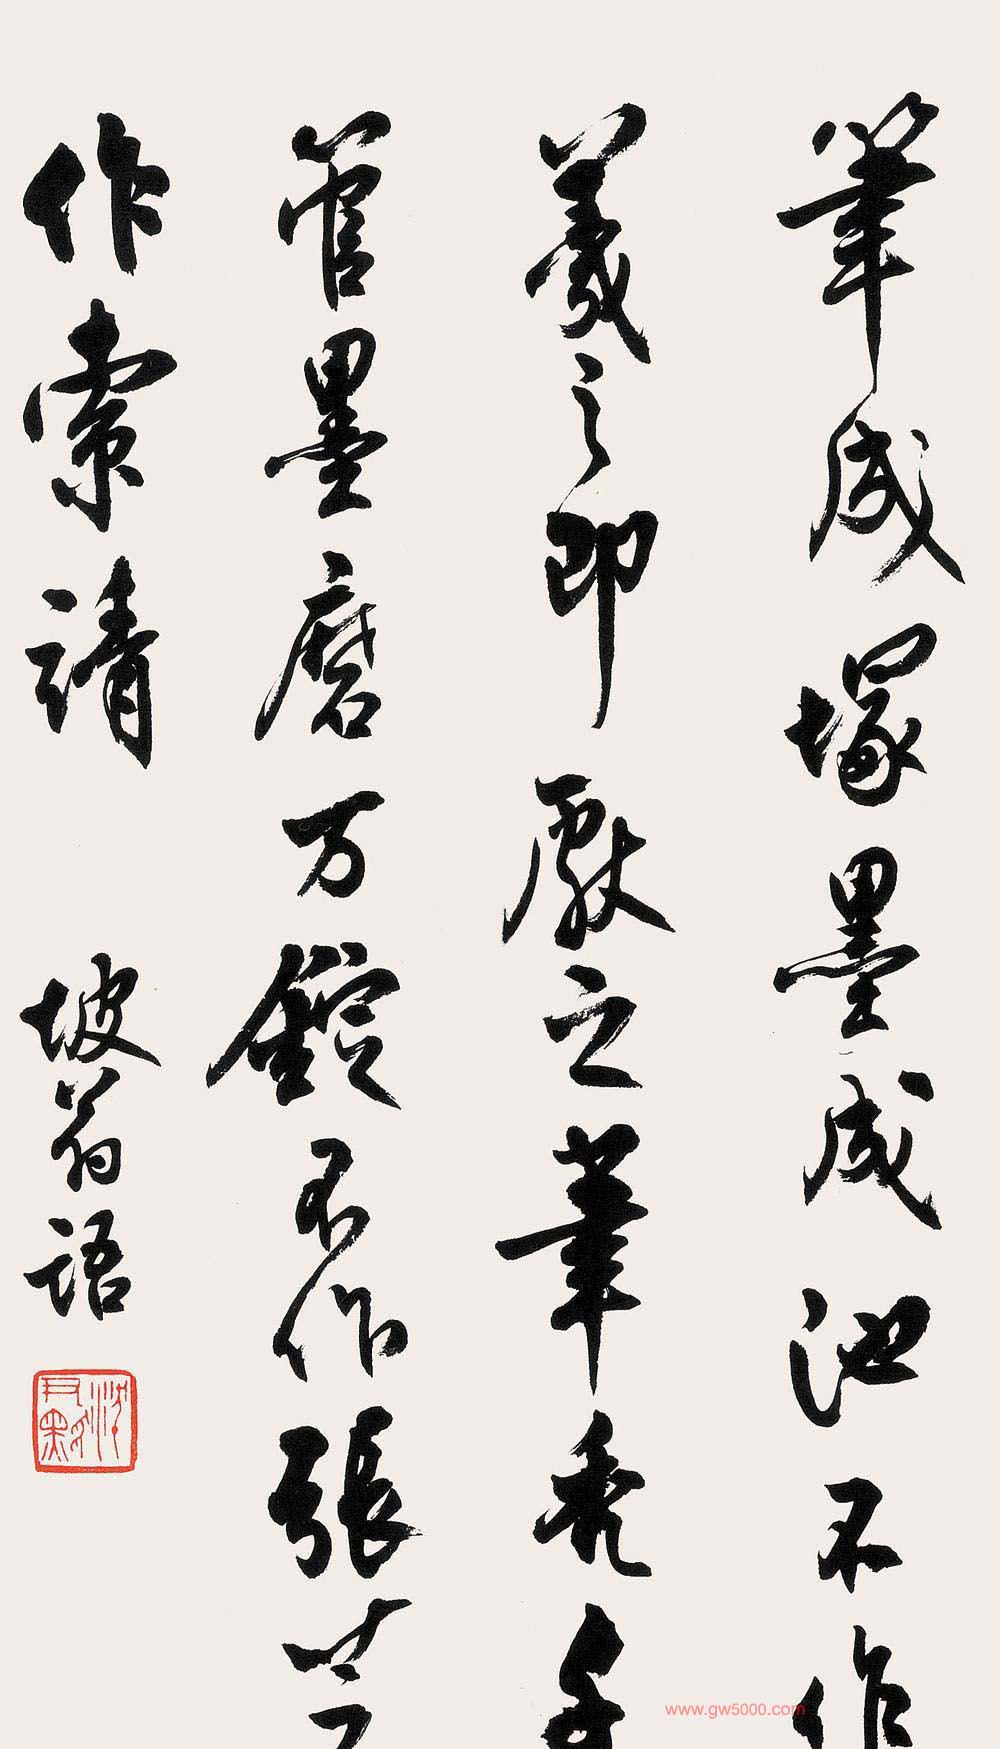 筆成塚墨成池不作
羲之即獻之筆禿千
管墨磨万鋌不作張芝
作索靖
坡翁語
沈尹默
www.gw5000.com